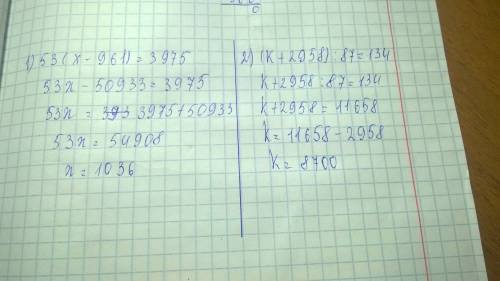 1) 53(x - 961) = 3975
53x - 50933 = 3975
53x = 3975 + 50933
53x = 54908
x = 1036
2) (k + 2958) : 87 = 134
k + 2958 : 87 = 134
k + 2958 = 11658
k = 11658 - 2958
k = 8700